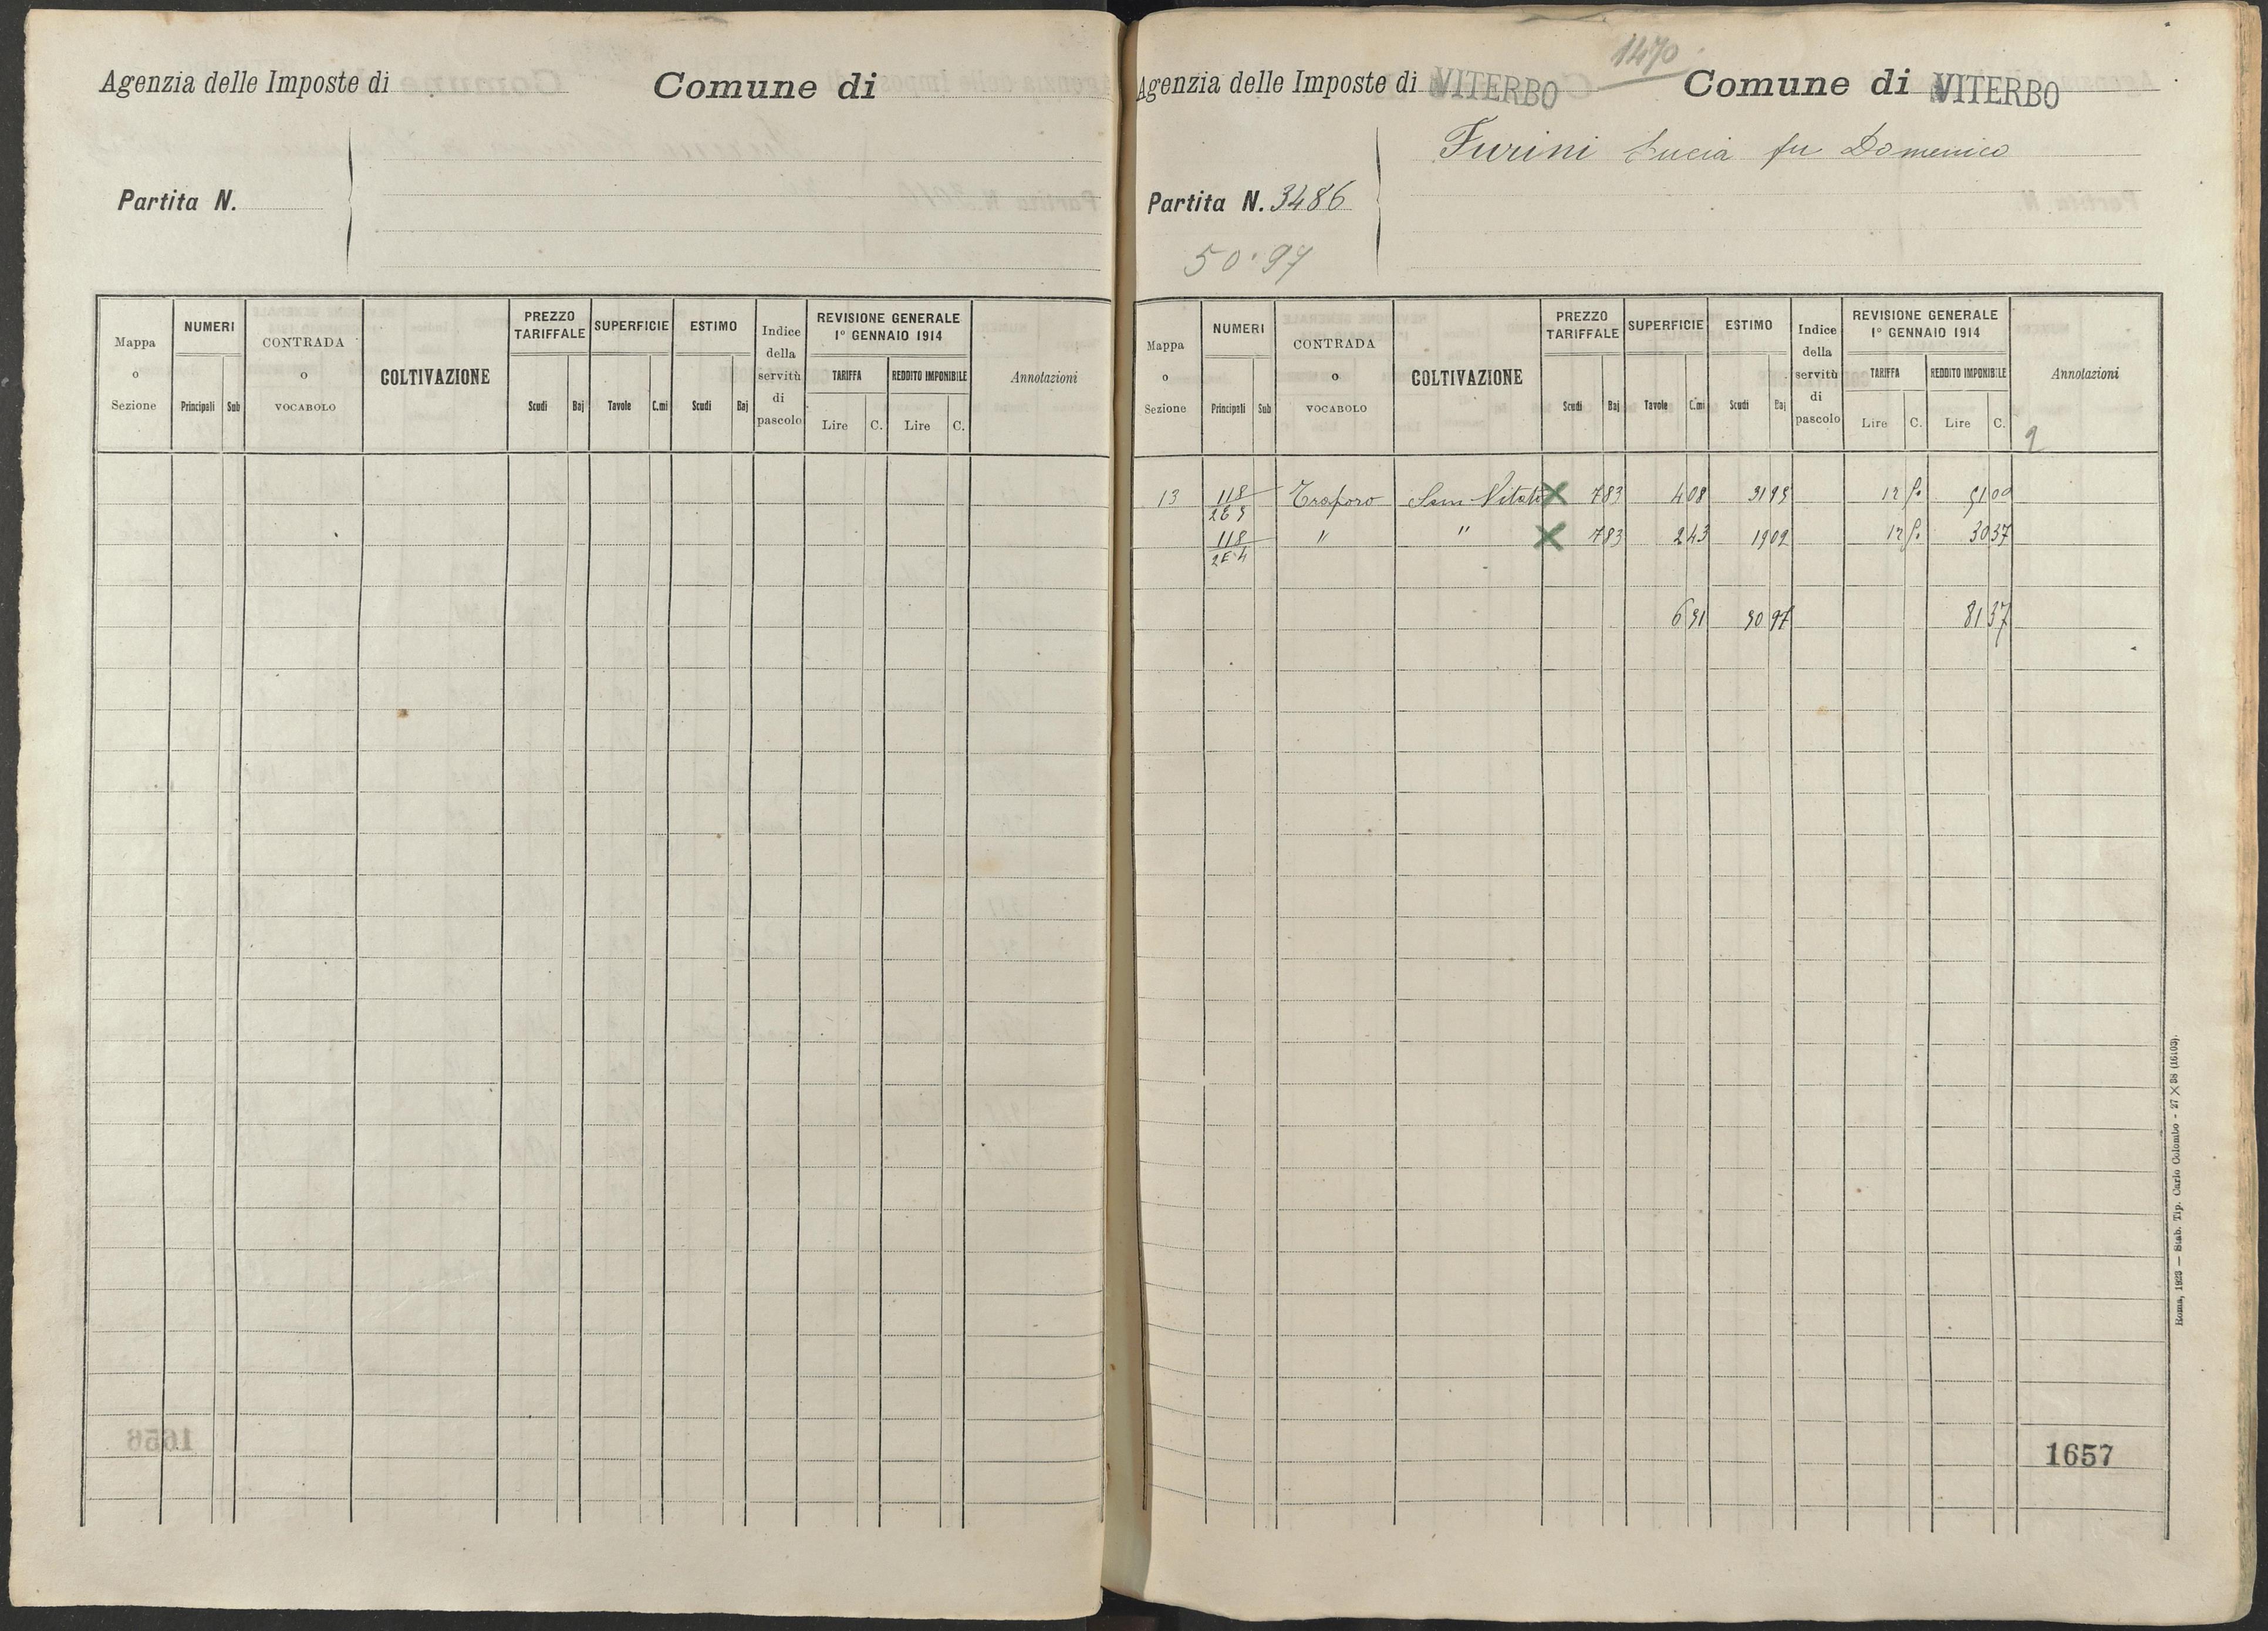 Agenzia delle Imposte di
Comune di
Partita N.
Mappa o Sezione
NUMERI
Principali Sub
CONTRADA o VOCABOLO
COLTIVAZIONE
PREZZO TARIFFALE
Scudi Baj
SUPERFICIE
Tavole C.mi
ESTIMO
Scudi Baj
Indice della servitù di pascolo
REVISIONE GENERALE 1° GENNAIO 1914
TARIFFA
Lire C.
REDDITO IMPONIBILE
Lire C.
Annotazioni
1656
1470
Agenzia delle Imposte di VITERBO
Comune di VITERBO
Furini Lucia fu Domenico
Partita N. 3486
50.97
Mappa o Sezione
NUMERI
Principali Sub
CONTRADA o VOCABOLO
COLTIVAZIONE
PREZZO TARIFFALE
Scudi Baj
SUPERFICIE
Tavole C.mi
ESTIMO
Scudi Baj
Indice della servitù di pascolo
REVISIONE GENERALE 1° GENNAIO 1914
TARIFFA
Lire C.
REDDITO IMPONIBILE
Lire C.
Annotazioni
2
13 118 Traforo Sem Vitato X 7 83 4 08 31 95 51 00
118 " " X 7 83 2 43 19 02 30 37
6 51 50 97 81 37
1657
Roma, 1923 — Stab. Tip. Carlo Colombo - 27 X 38 (16103).